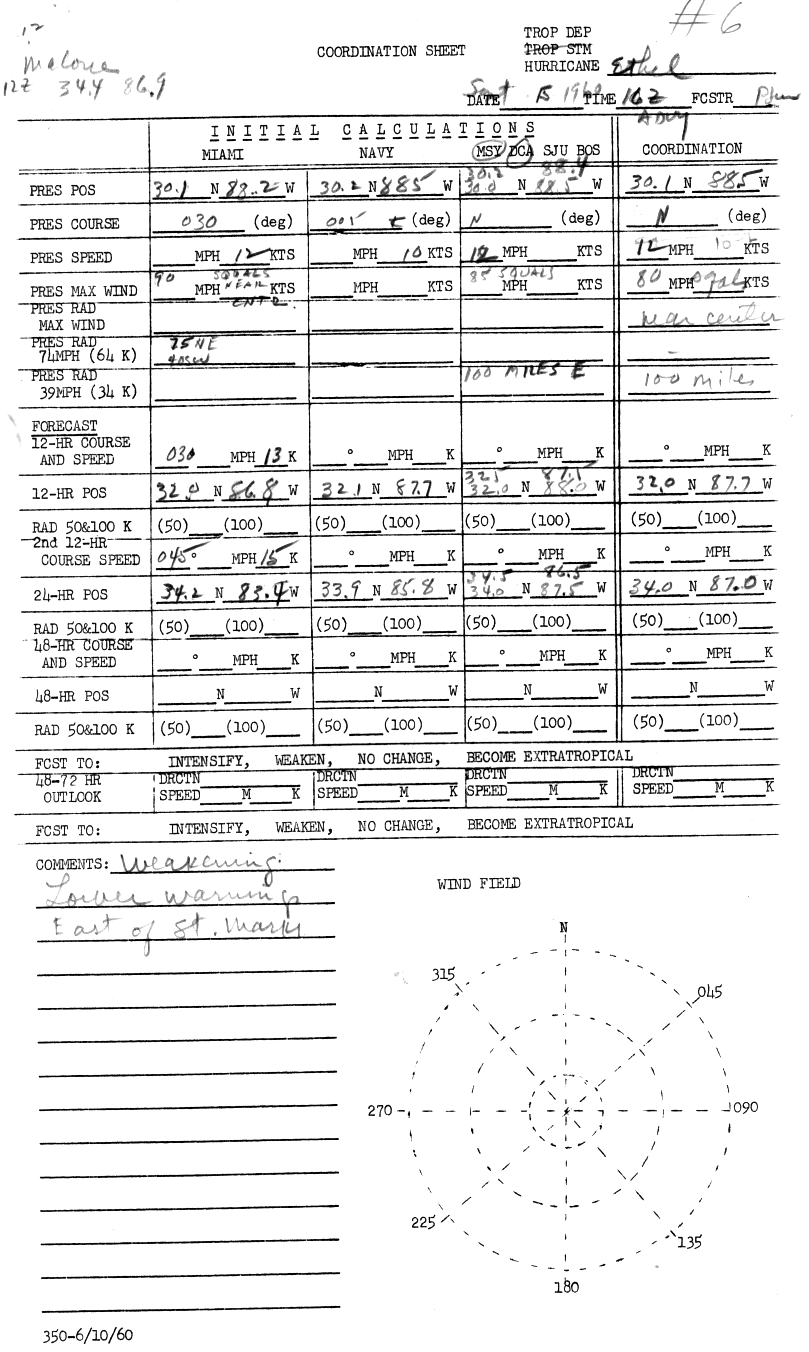 #6
12
Malone
12Z 34.4 86.9
COORDINATION SHEET
TROP DEP
TROP STM
HURRICANE Ethel
DATE Sept 15 1960 TIME 16Z FCSTR
Advy
INITIAL CALCULATIONS
MIAMI NAVY MSY DCA SJU BOS COORDINATION
30.2 88.4
PRES POS 30.1 N 88.2 W 30.2 N 88.5 W 30.0 N 88.5 W 30.1 N 88.5 W
PRES COURSE 030 (deg) 005 (deg) N (deg) N (deg)
PRES SPEED MPH 12 KTS MPH 10 KTS 12 MPH KTS 12 MPH 10 KTS
PRES MAX WIND 90 MPH SQUALS NEAR CNTR KTS MPH KTS 85 SQUALS MPH KTS 80 MPH KTS
PRES RAD
MAX WIND near center
PRES RAD 75 NE
74MPH (64 K) 40SW -
PRES RAD 100 MILES E
39MPH (34 K) 100 miles
FORECAST
12-HR COURSE
AND SPEED 030 MPH 13 K ° MPH K ° MPH K ° MPH K
32.5 87.5
12-HR POS 32.0 N 86.8 W 32.1 N 87.7 W 32.0 N 88.0 W 32.0 N 87.7 W
RAD 50&100 K (50) (100) (50) (100) (50) (100) (50) (100)
2nd 12-HR
COURSE SPEED 045° MPH 15 K ° MPH K ° MPH K ° MPH K
34.5 86.5
24-HR POS 34.2 N 83.4 W 33.9 N 85.8 W 34.0 N 87.5 W 34.0 N 87.0 W
RAD 50&100 K (50) (100) (50) (100) (50) (100) (50) (100)
48-HR COURSE
AND SPEED ° MPH K ° MPH K ° MPH K ° MPH K
48-HR POS N W N W N W N W
RAD 50&100 K (50) (100) (50) (100) (50) (100) (50) (100)
FCST TO: INTENSIFY, WEAKEN, NO CHANGE, BECOME EXTRATROPICAL
48-72 HR DRCTN DRCTN DRCTN DRCTN
OUTLOOK SPEED M K SPEED M K SPEED M K SPEED M K
FCST TO: INTENSIFY, WEAKEN, NO CHANGE, BECOME EXTRATROPICAL
COMMENTS: Weakening.
Lower warnings
East of St. Marks
WIND FIELD
N
315 045
270 090
225 135
180
350-6/10/60